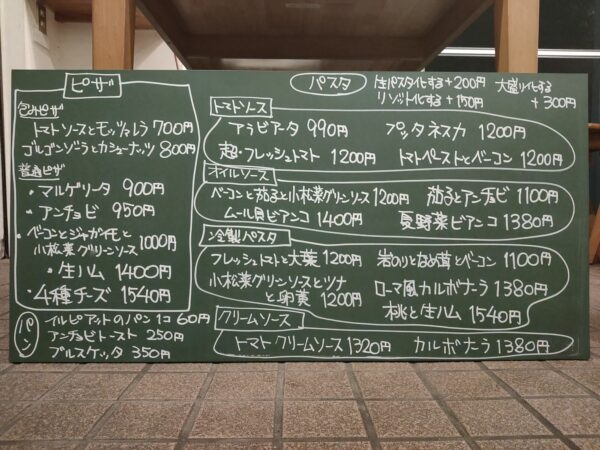 ピザ
包みピザ
トマトソースとモッツァレラ 700円
ゴルゴンゾーラとカシューナッツ 800円
普通ピザ
・マルゲリータ 900円
・アンチョビ 950円
・ベーコンとジャガイモと
小松菜グリーンソース 1000円
・生ハム 1400円
・4種チーズ 1540円
パン
イルピアットのパン 1コ 60円
アンチョビトースト 250円
ブルスケッタ 350円
パスタ
生パスタ化する+200円
リゾット化する+150円
大盛り化する
+300円
トマトソース
アラビアータ 990円 プッタネスカ 1200円
超・フレッシュトマト 1200円 トマトペーストとベーコン 1200円
オイルソース
ベーコンと茄子と小松菜グリーンソース 1200円 茄子とアンチョビ 1100円
ムール貝ビアンコ 1400円 夏野菜ビアンコ 1380円
冷製パスタ
フレッシュトマトと大葉 1200円 岩のりとなめ茸とベーコン 1100円
小松菜グリーンソースとツナ
と卵黄 1200円
ローマ風カルボナーラ 1380円
桃と生ハム 1540円
クリームソース
トマトクリームソース 1320円 カルボナーラ 1380円